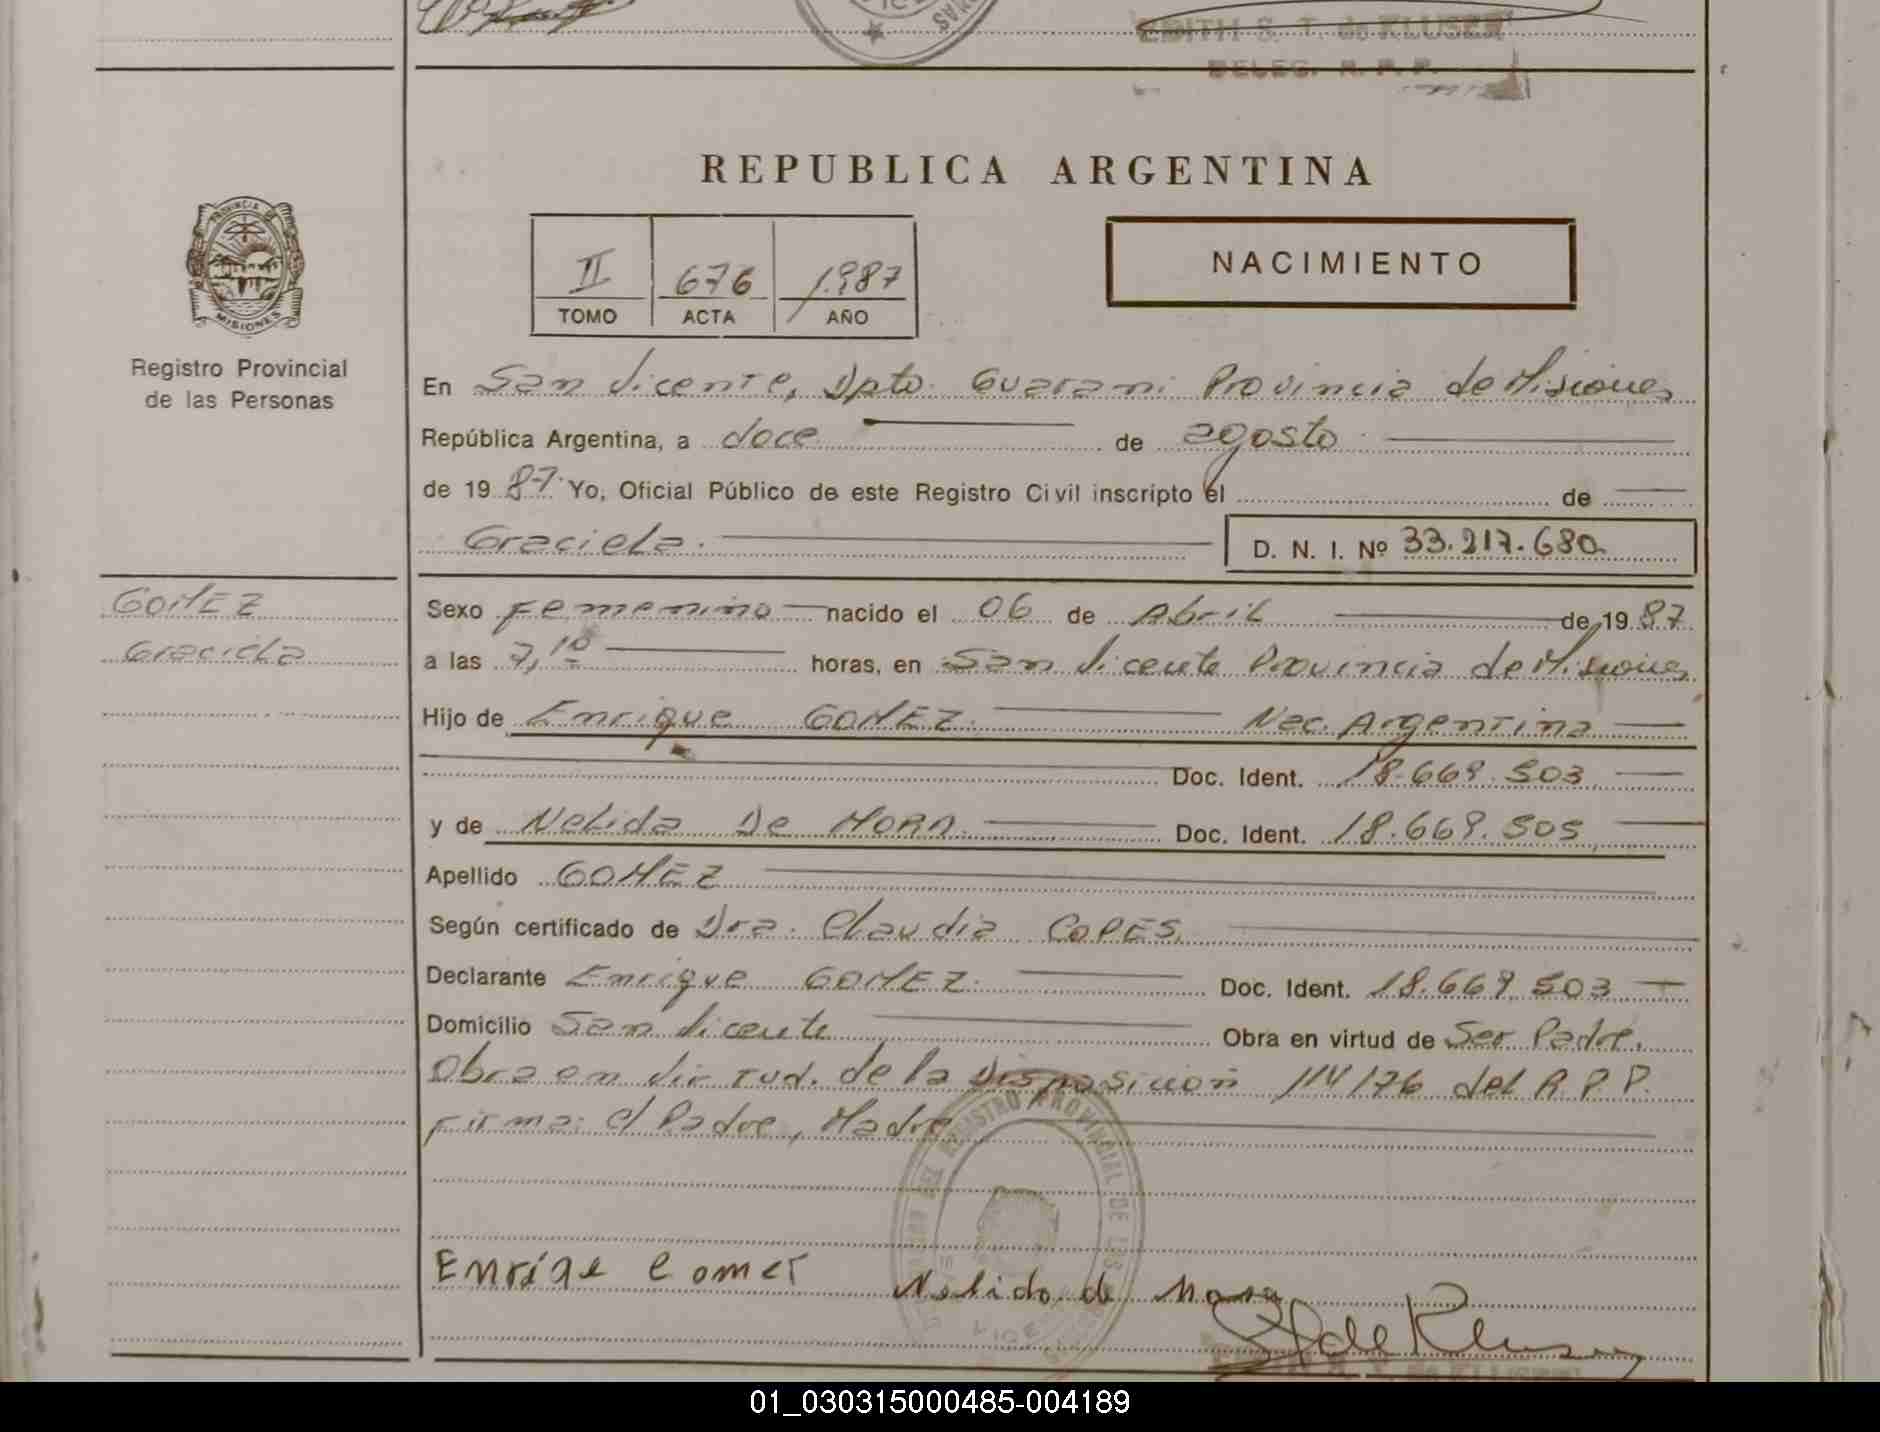 EDITH S. T. de KLUSER
DELEG. R. P. P.
REPUBLICA ARGENTINA
PROVINCIA DE
MISIONES
Registro Provincial
de las Personas
II 676 1987
TOMO ACTA AÑO
NACIMIENTO
En San Vicente, Dpto. Guarani Provincia de Misiones
República Argentina, a doce de agosto
de 1987. Yo, Oficial Público de este Registro Civil inscripto el de
Graciela. D. N. I. Nº 33.217.680
GOMEZ
Graciela
Sexo femenino nacido el 06 de Abril de 1987
a las 7,10 horas, en San Vicente Provincia de Misiones
Hijo de Enrique GOMEZ. Nac. Argentina
Doc. Ident. 18.669.503
y de Nelida De MORA. Doc. Ident. 18.669.505
Apellido GOMEZ
Según certificado de Dra. Claudia COPES.
Declarante Enrique GOMEZ. Doc. Ident. 18.669.503
Domicilio San Vicente Obra en virtud de Ser Padre.
Obra en vir tud. de la Disposicion 114/76 del R.P.P.
firma: el Padre, Madre
REGISTRO PROVINCIAL DE LAS
Enriqe Comez Nelida de Mora
01_030315000485-004189